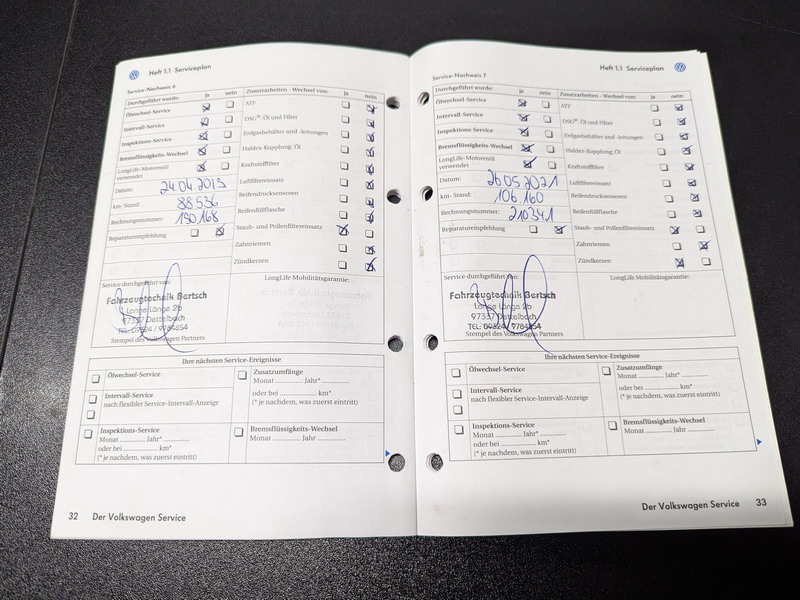 Heft 1.1 Serviceplan
Service-Nachweis 6
Durchgeführt wurde: ja nein
Ölwechsel-Service
Intervall-Service
Inspektions-Service
Bremsflüssigkeits-Wechsel
LongLife-Motorenöl
verwendet
Datum: 24.04.2019
km- Stand: 88536
Rechnungsnummer: 190168
Reparaturempfehlung
Zusatzarbeiten - Wechsel von: Ja nein
ATF
DSG®- Öl und Filter
Erdgasbehälter und -leitungen
Haldex-Kupplung: Öl
Kraftstofffilter
Luftfiltereinsatz
Reifendrucksensoren
Reifenfüllflasche
Staub- und Pollenfiltereinsatz
Zahnriemen
Zündkerzen
Service durchgeführt von:
LongLife Mobilitätsgarantie:
Fahrzeugtechnik Bertsch
Lange Länge 2b
97337 Dettelbach
TEL: 09324 / 9784854
Stempel des Volkswagen Partners
Ihre nächsten Service-Ereignisse
Ölwechsel-Service
Intervall-Service
nach flexibler Service-Intervall-Anzeige
Inspektions-Service
Monat ............ Jahr* ............
oder bei ............ km*
(* je nachdem, was zuerst eintritt)
Zusatzumfänge
Monat ............ Jahr* ............
oder bei ............ km*
(* je nachdem, was zuerst eintritt)
Bremsflüssigkeits-Wechsel
Monat ............ Jahr ............
32 Der Volkswagen Service
Heft 1.1 Serviceplan
Service-Nachweis 7
Durchgeführt wurde: ja nein
Ölwechsel-Service
Intervall-Service
Inspektions-Service
Bremsflüssigkeits-Wechsel
LongLife-Motorenöl
verwendet
Datum: 26.05.2021
km- Stand: 106.160
Rechnungsnummer: 210341
Reparaturempfehlung
Zusatzarbeiten - Wechsel von: ja nein
ATF
DSG®- Öl und Filter
Erdgasbehälter und -leitungen
Haldex-Kupplung: Öl
Kraftstofffilter
Luftfiltereinsatz
Reifendrucksensoren
Reifenfüllflasche
Staub- und Pollenfiltereinsatz
Zahnriemen
Zündkerzen
Service durchgeführt von:
LongLife Mobilitätsgarantie:
Fahrzeugtechnik Bertsch
Lange Länge 2b
97337 Dettelbach
TEL: 09324 / 9784854
Stempel des Volkswagen Partners
Ihre nächsten Service-Ereignisse
Ölwechsel-Service
Intervall-Service
nach flexibler Service-Intervall-Anzeige
Inspektions-Service
Monat ............ Jahr* ............
oder bei ............ km*
(* je nachdem, was zuerst eintritt)
Zusatzumfänge
Monat ............ Jahr* ............
oder bei ............ km*
(* je nachdem, was zuerst eintritt)
Bremsflüssigkeits-Wechsel
Monat ............ Jahr ............
Der Volkswagen Service 33